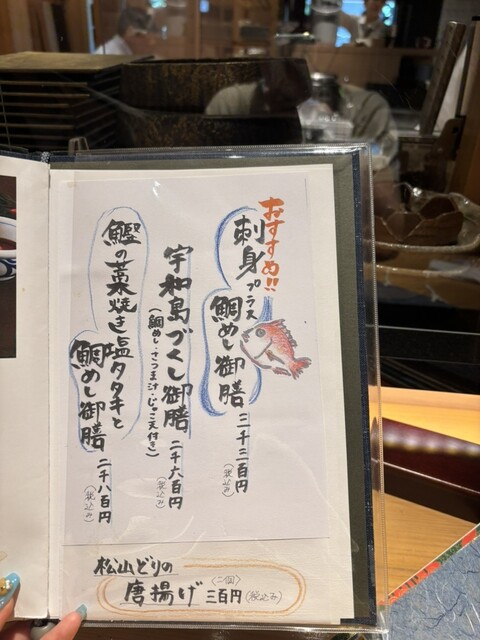 おすすめ!!
刺身プラス
鯛めし御膳 三千三百円
(税込み)
宇和島づくし御膳 二千六百円
(鯛めし・さつま汁・じゃこ天付き)
(税込み)
鰹の藁焼き塩タタキと
鯛めし御膳 二千八百円
(税込み)
松山どりの
唐揚げ〈二個〉三百円(税込み)